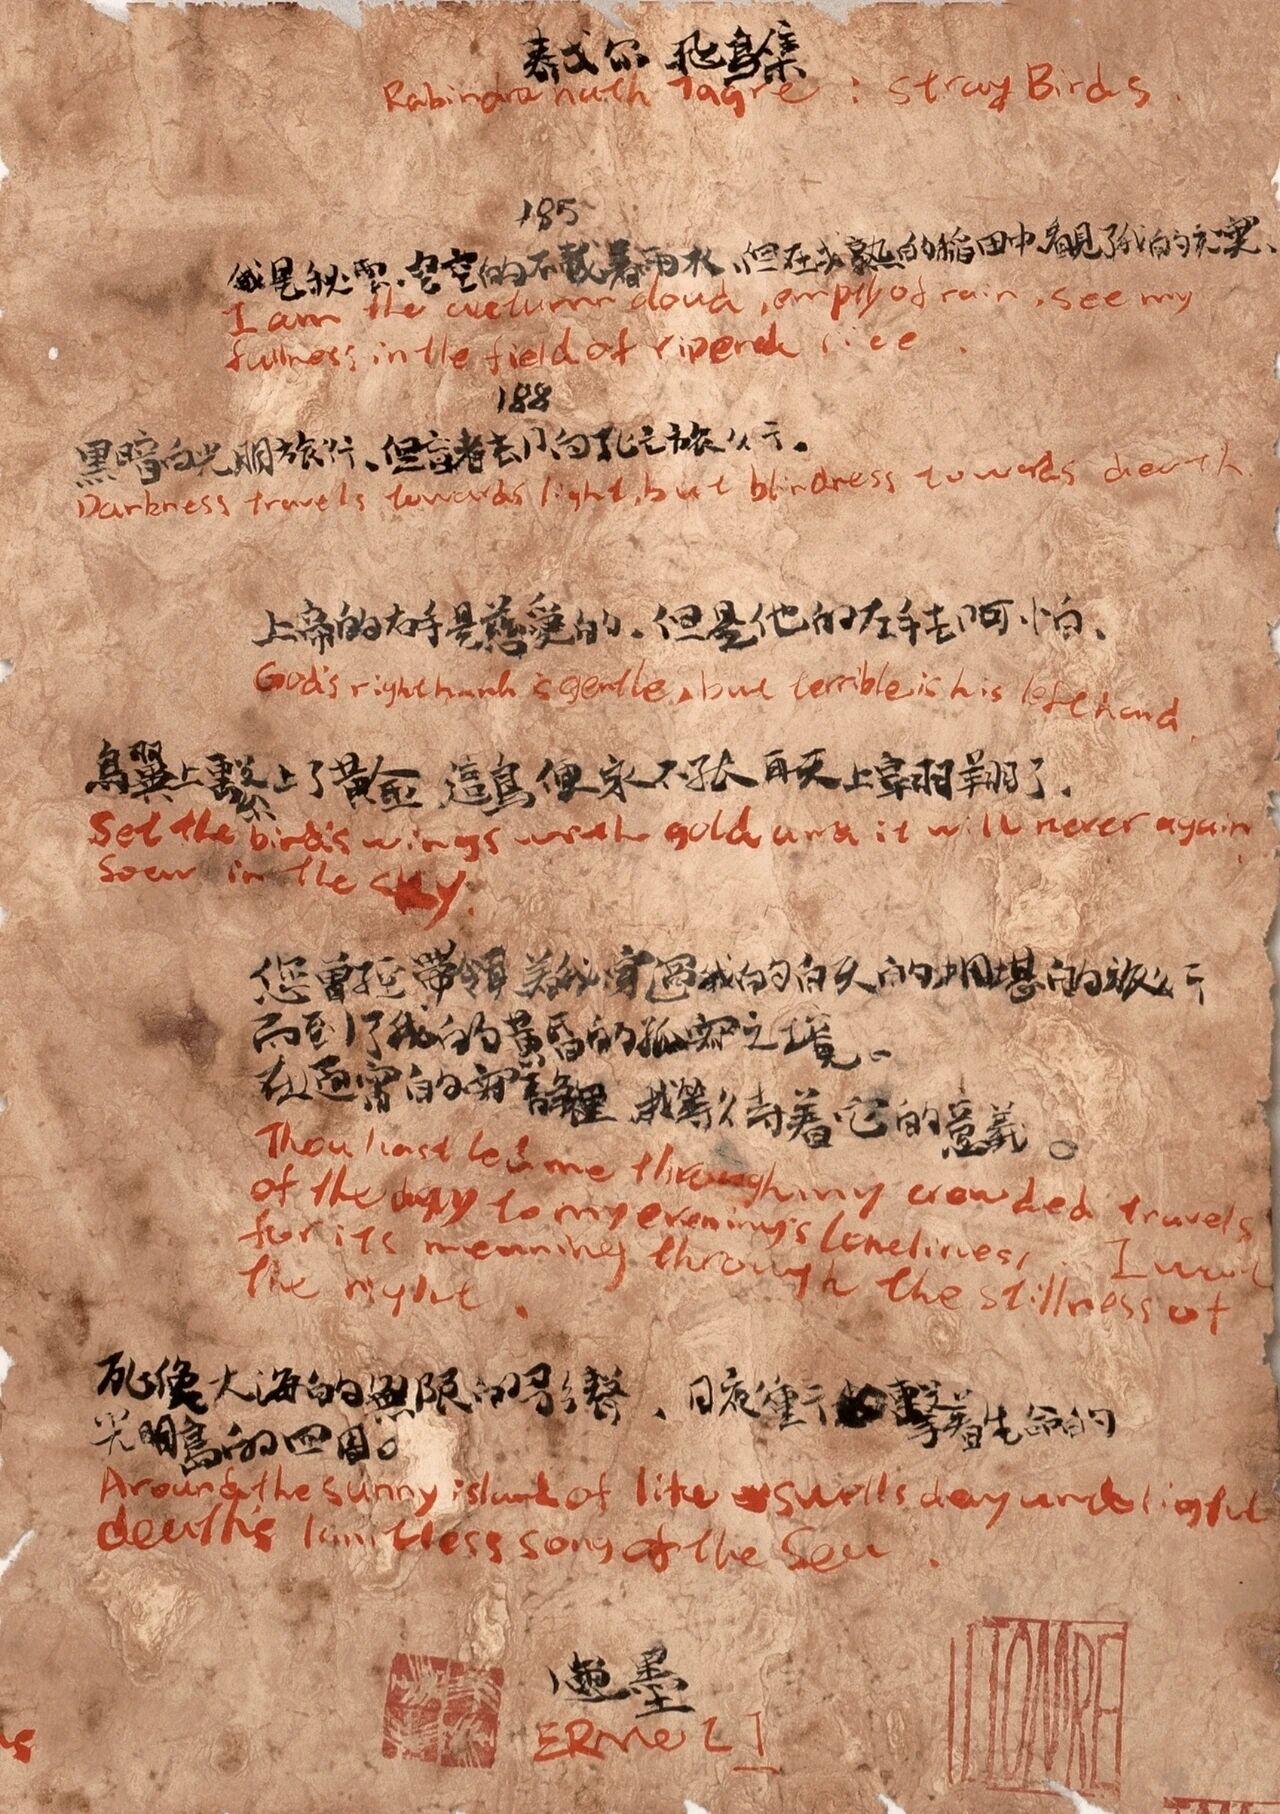 泰戈尔 飛鳥集
Rabindra nath Tagre : Stray Birds.
185
我是秋雲、空空的不載着雨水、但在成熟的稻田中看見了我的充實、
I am the autumn cloud, empty of rain, see my
fullness in the field of ripened rice.
188
黑暗向光明旅行、但盲者却向死亡旅行。
Darkness travels towards light, but blindness towards death.
上帝的右手是慈愛的、但是他的左手却可怕、
God's right hand is gentle, but terrible is his left hand.
鳥翼上繫上了黃金 這鳥便永不在天上翱翔了、
Set the bird's wings with gold and it will never again
soar in the sky.
您曾經帶領着我穿過我的白天的擁堪的旅行
而到了我的黃昏的孤寂之境。
在通宵的寂靜裡 我等待着它的意義。
Thou hast led me through my crowded travels
of the day to my evening's loneliness. I wait
for its meaning through the stillness of
the night.
死像大海的無限的歌聲、日夜衝擊着生命的
光明島的四周。
Around the sunny island of life swells day and night
death's limitless song of the Sea.
墨